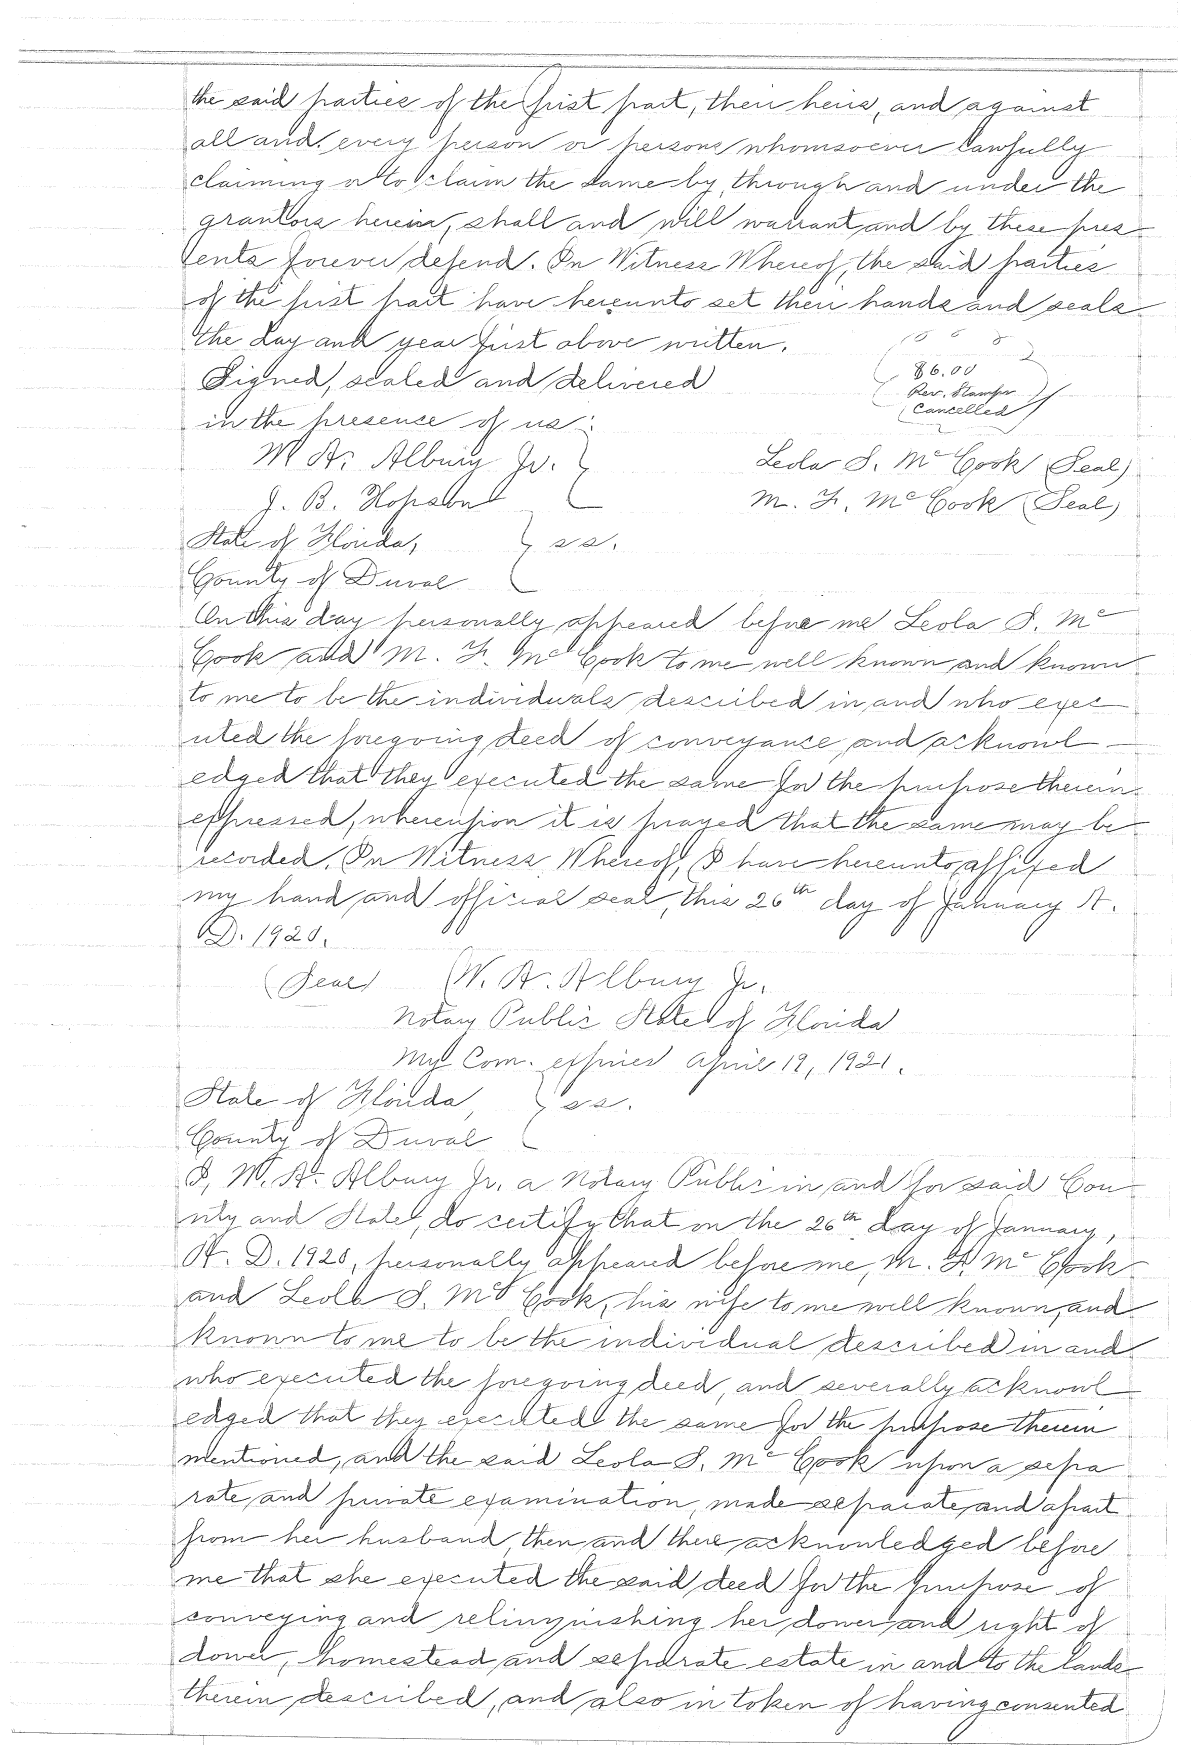 the said parties of the first part, their heirs, and against
all and every person or persons whomsoever lawfully
claiming or to claim the same by, through and under the
grantors herein, shall and will warrant and by these pres
ents forever defend. In Witness Whereof, the said parties
of the first part have hereunto set their hands and seals
the day and year first above written.
Signed, sealed and delivered
in the presence of us:
$6.00
Rev. Stamps
Cancelled
W. A. Albury Jr.
Leola S. McCook (Seal)
J. B. Hopson
M. F. McCook (Seal)
State of Florida, } ss.
County of Duval
On this day personally appeared before me Leola S. Mc
Cook and M. F. McCook to me well known and known
to me to be the individuals described in and who exec
uted the foregoing deed of conveyance and acknowl-
edged that they executed the same for the purpose therein
expressed, whereupon it is prayed that the same may be
recorded. In Witness Whereof, I have hereunto affixed
my hand and official seal, this 26th day of January A.
D. 1920.
(Seal) W. A. Albury Jr.
Notary Public State of Florida
My Com. expires April 19, 1921.
State of Florida, } ss.
County of Duval
I, W. A. Albury Jr. a Notary Public in and for said Cou
nty and State, do certify that on the 26th day of January,
A. D. 1920, personally appeared before me, M. F. McCook
and Leola S. McCook, his wife to me well known, and
known to me to be the individual described in and
who executed the foregoing deed, and severally acknowl
edged that they executed the same for the purpose therein
mentioned, and the said Leola S. McCook upon a sepa
rate and private examination, made separate and apart
from her husband, then and there acknowledged before
me that she executed the said deed for the purpose of
conveying and relinquishing her dower and right of
dower, homestead and separate estate in and to the lands
therein described, and also in token of having consented